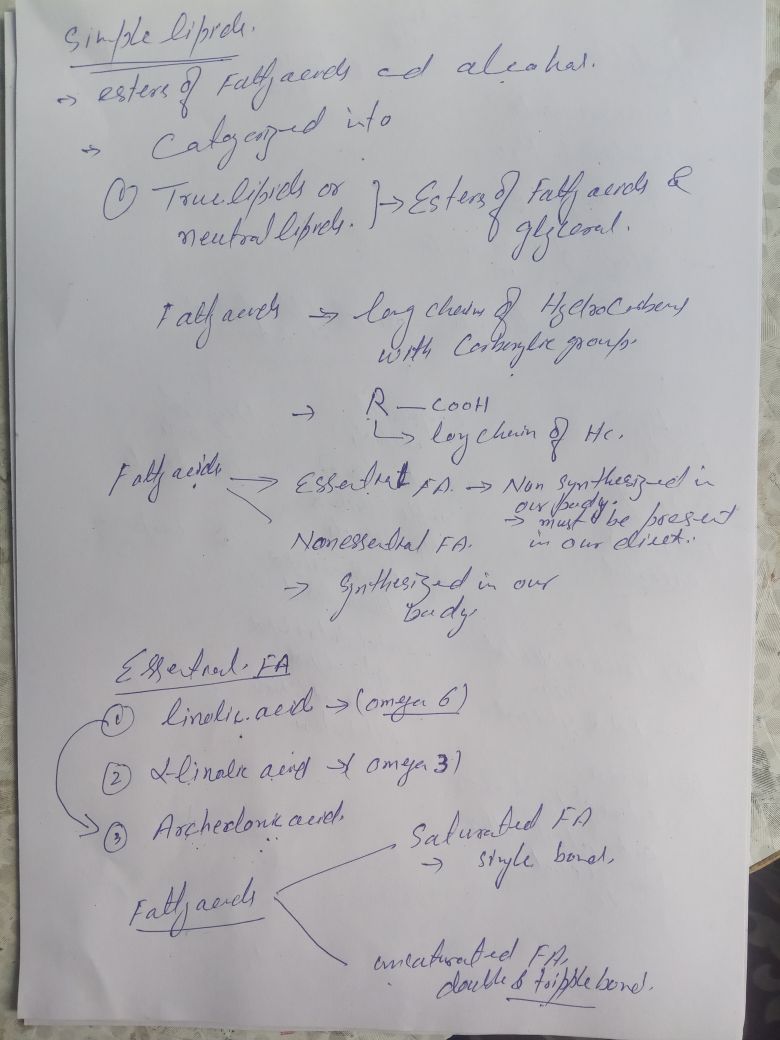 Simple lipids.
→ esters of Fatty acids and alcohol.
→ Categorized into
① True lipids or } → Esters of Fatty acids &
neutral lipids. glycerol.
Fatty acids → long chain of Hydrocarbons
with Carboxylic group.
→ R — COOH
↳ long chain of Hc.
Fatty acids → Essential FA. → Non synthesized in
our body.
→ must be present
Nonessential FA. in our dieet.
→ Synthesized in our
body.
Essential FA
① linolic acid → (omega 6)
② α-linolic acid → (omega 3)
③ Archedonic acid.
Saturated FA
→ single bond.
Fatty acids
unsaturated FA.
double & tripple bond.